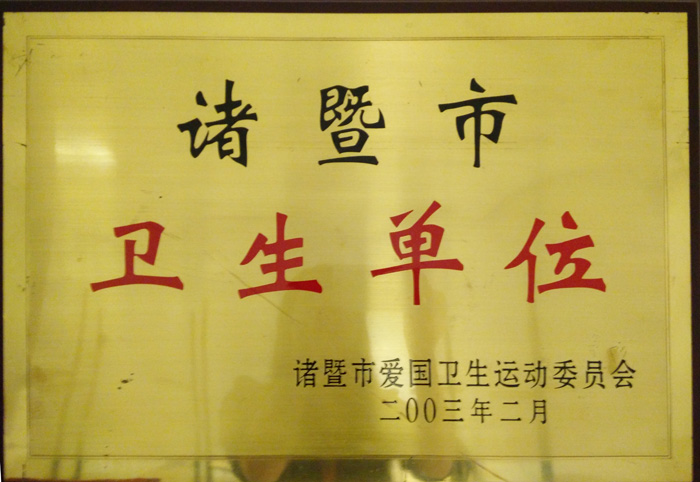 诸暨市
卫生单位
诸暨市爱国卫生运动委员会
二00三年二月